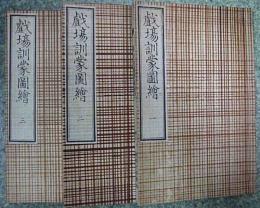 戯場訓蒙圖繪 一
戯場訓蒙圖繪 二
戯場訓蒙圖繪 三